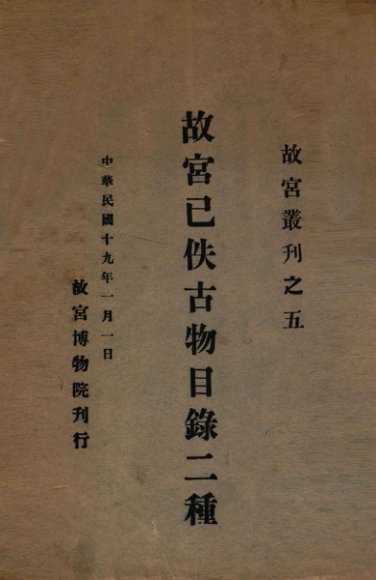 故宮叢刊之五
故宮已佚古物目錄二種
中華民國十九年一月一日
故宮博物院刊行